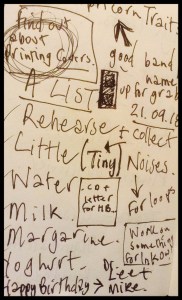 Find out
about
Printing Coders.
Unicorn Traits
good band
name
up for grabs
21.09.18
A LIST
Rehearse + collect
Little (Tiny) Noises.
Water
CO +
letter
for MB.
For loop
Milk.
Margarine.
Work on
something
for InkOut
Yoghurt.
Dr Leet
Happy Birthday → Mike.